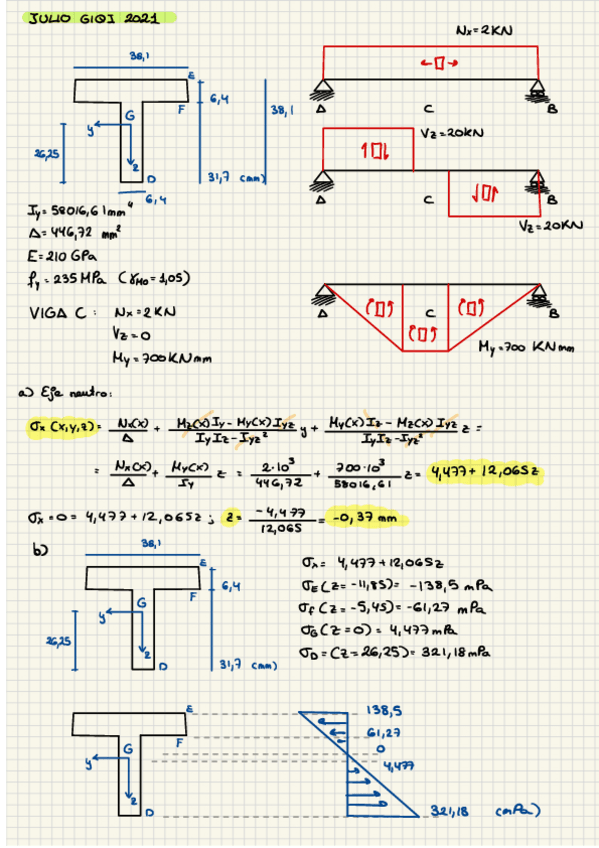 JULIO GIQI 2021
Nx=2KN
38,1
E
6,4
F
38,1
G
y
26,25
z
D
31,7 (mm)
6,4
A
C
B
Vz=20KN
A
C
B
Vz=20KN
Iy=58016,61mm⁴
A=446,72 mm²
E=210 GPa
fy=235 MPa (γM0=1,05)
VIGA C: Nx=2KN
Vz=0
My=700KNmm
A
C
B
My=700 KNmm
a) Eje neutro:
σx(x,y,z)= Nx(x)/A + (Mz(x)Iy-My(x)Iyz)/(IyIz-Iyz²) y + (My(x)Iz-Mz(x)Iyz)/(IyIz-Iyz²) z =
= Nx(x)/A + My(x)/Iy z = 2·10³/446,72 + 700·10³/58016,61 z= 4,477+12,065z
σx=0= 4,477+12,065z; z= -4,477/12,065 = -0,37 mm
b)
38,1
E
6,4
F
G
y
26,25
z
D
31,7 (mm)
σx= 4,477+12,065z
σE(z=-11,85)= -138,5 mPa
σf(z=-5,45)=-61,27 mPa
σG(z=0)= 4,477mPa
σD=(z=26,25)=321,18mPa
E
F
G
y
z
D
138,5
61,27
0
4,477
321,18 (mPa)